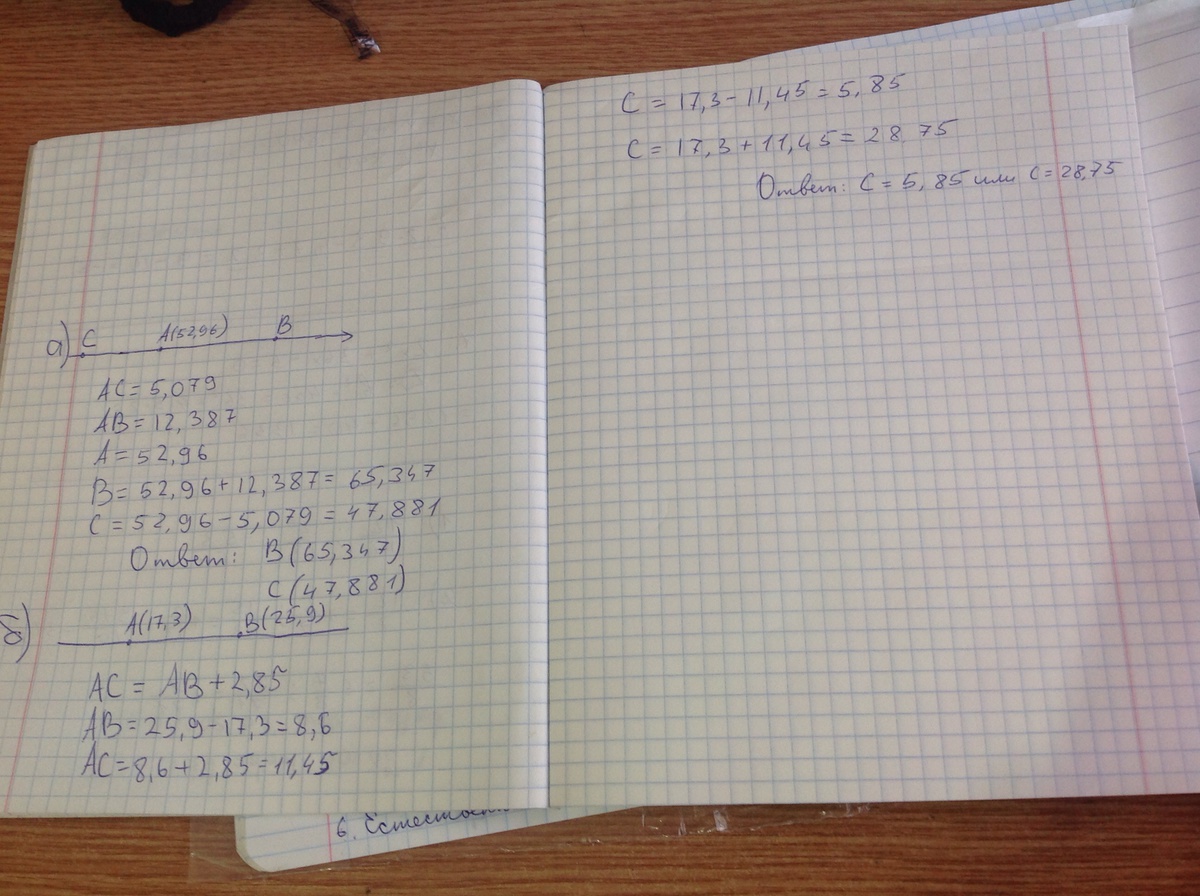 а) C A(52,96) B
AC = 5,079
AB = 12,387
A = 52,96
B = 52,96 + 12,387 = 65,347
C = 52,96 - 5,079 = 47,881
Ответ: B(65,347)
C(47,881)
б) A(17,3) B(25,9)
AC = AB + 2,85
AB = 25,9 - 17,3 = 8,6
AC = 8,6 + 2,85 = 11,45
C = 17,3 - 11,45 = 5,85
C = 17,3 + 11,45 = 28,75
Ответ: C = 5,85 или C = 28,75
6.